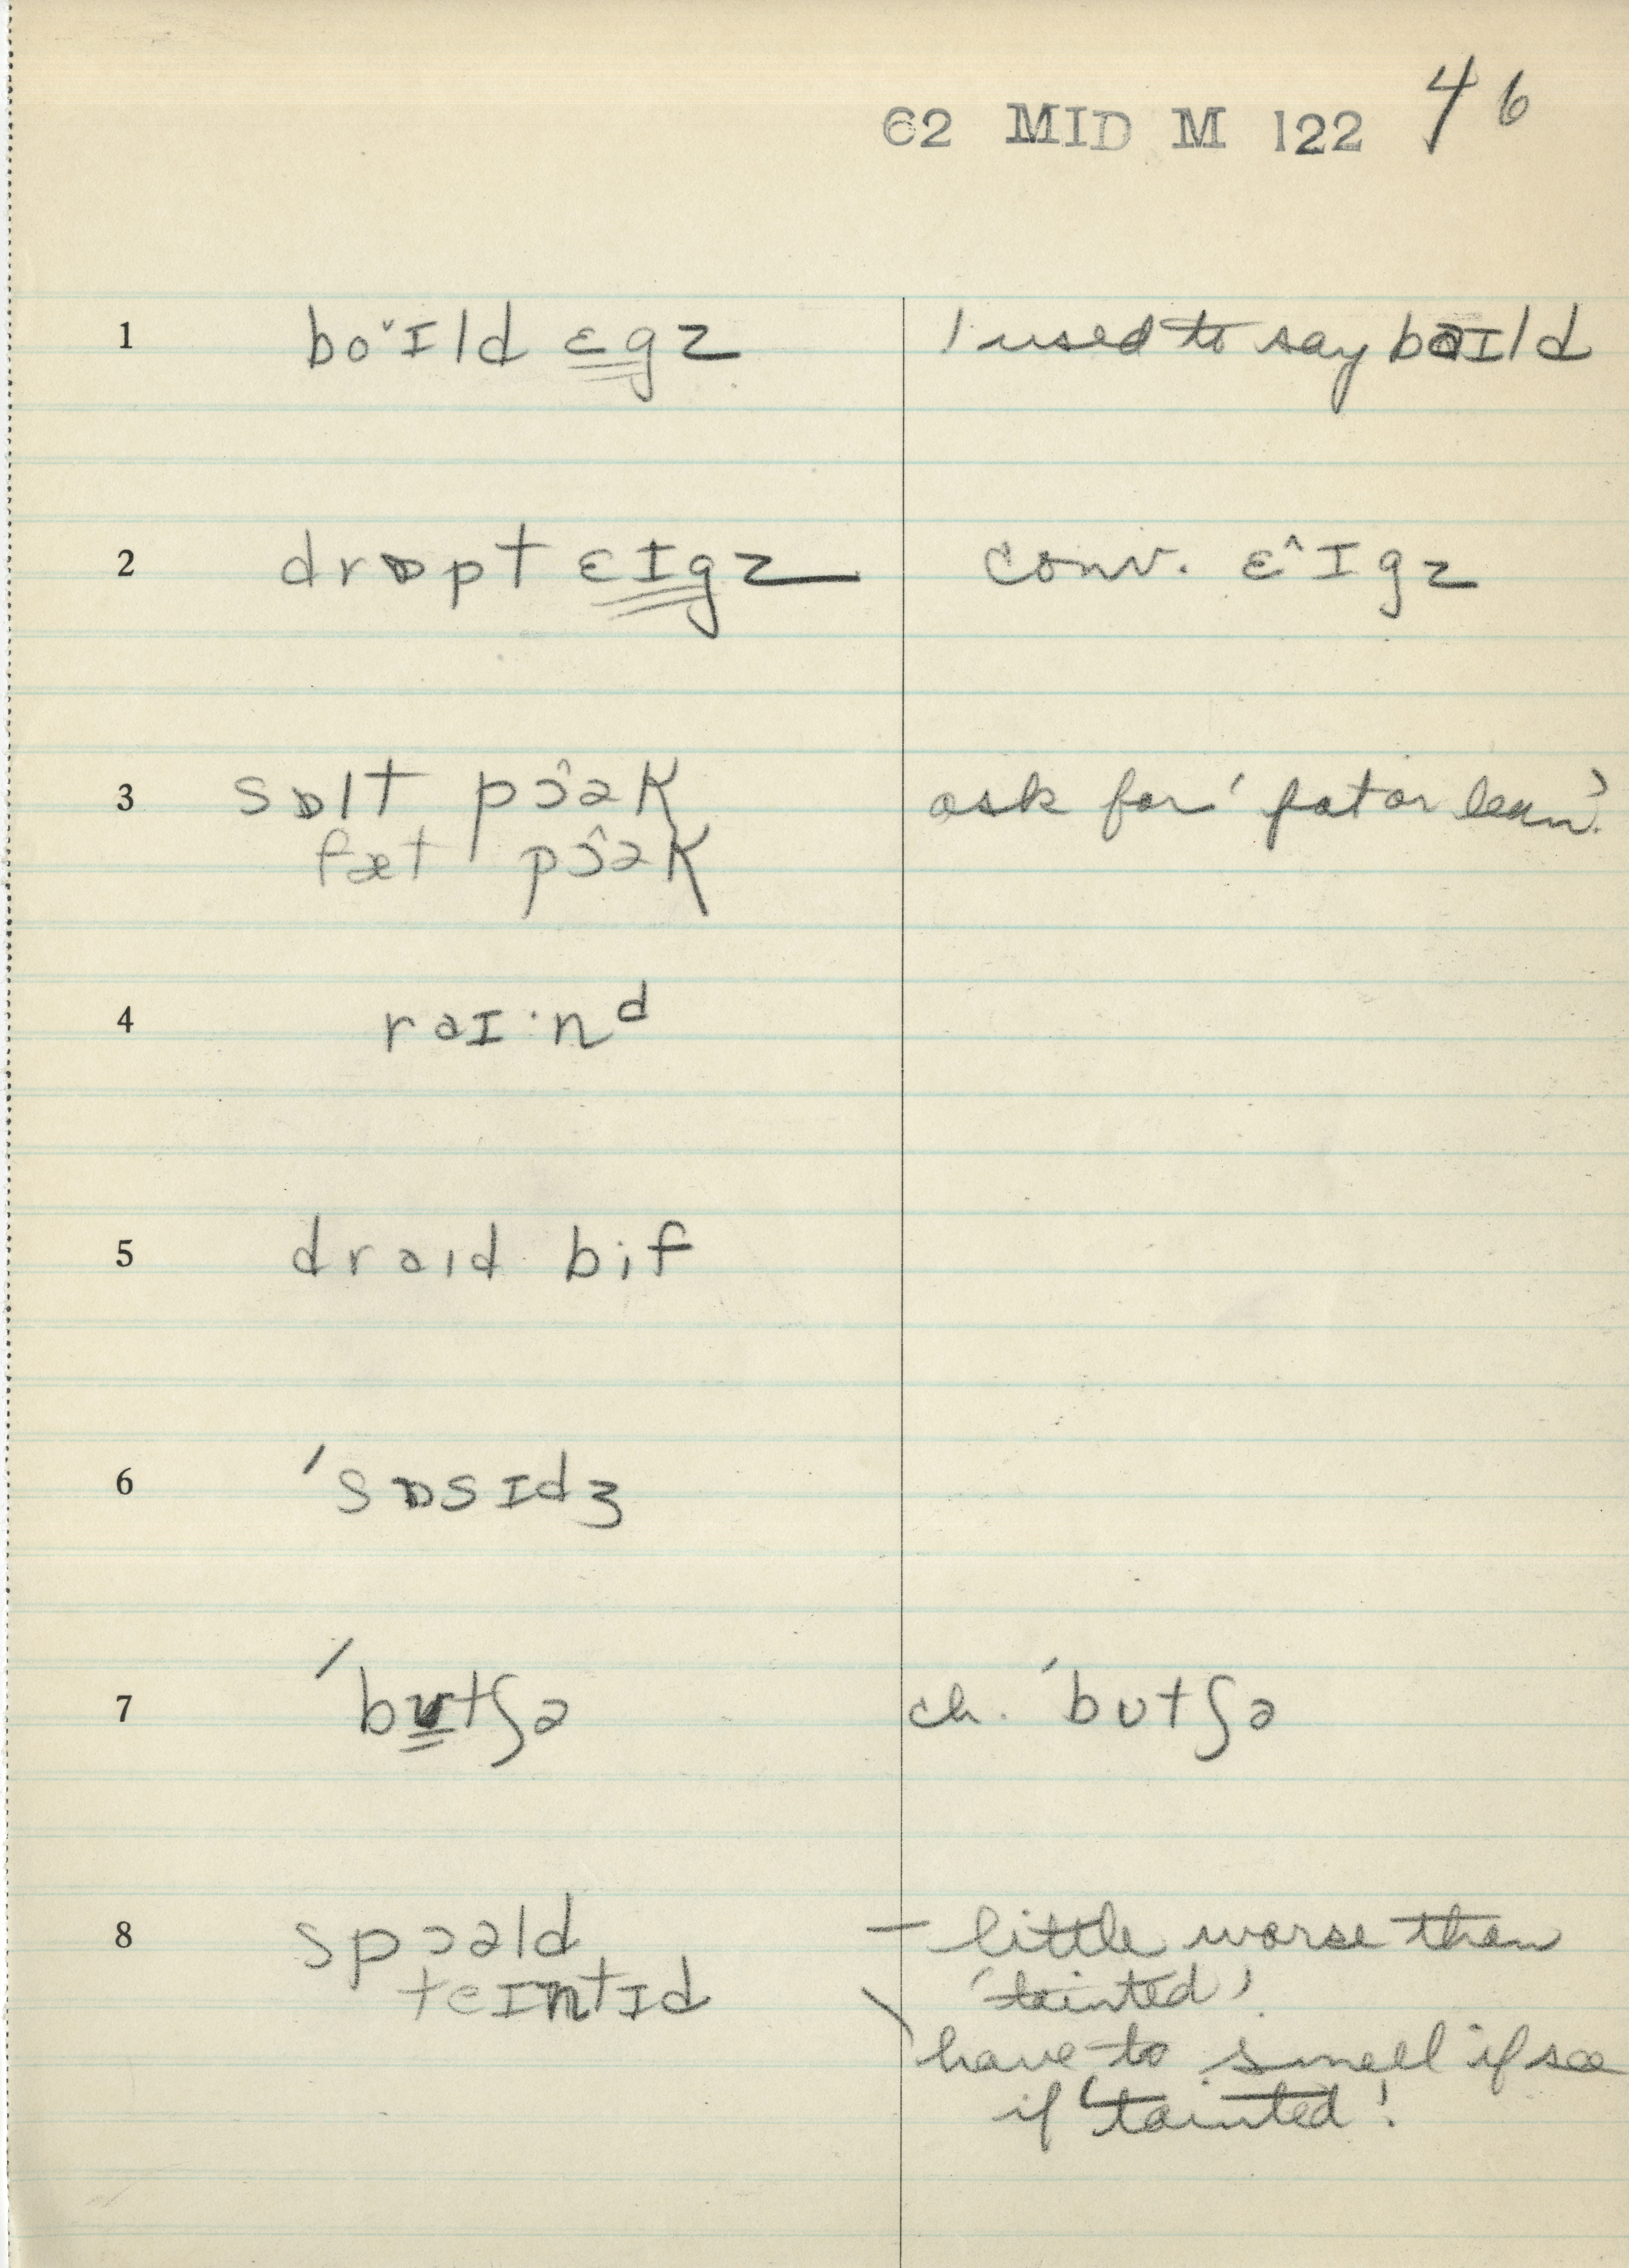 62 MID M 122 46
1 bo˅ɪld ɛgz I used to say bəɪld
2 drɒpt ɛɪgz conv. ɛ^ɪgz
3 sɒlt pɔ^ək ask for 'fat or lean'.
fæt pɔ^ək
4 rəɪ·nᵈ
5 draɪd bif
6 'sɒsɪdʒ
7 'bʊtʃə ch. 'bʊtʃə
8 spɔəld – little worse then
teɪntɪd 'tainted'.
\ have to smell if see
if 'tainted'.